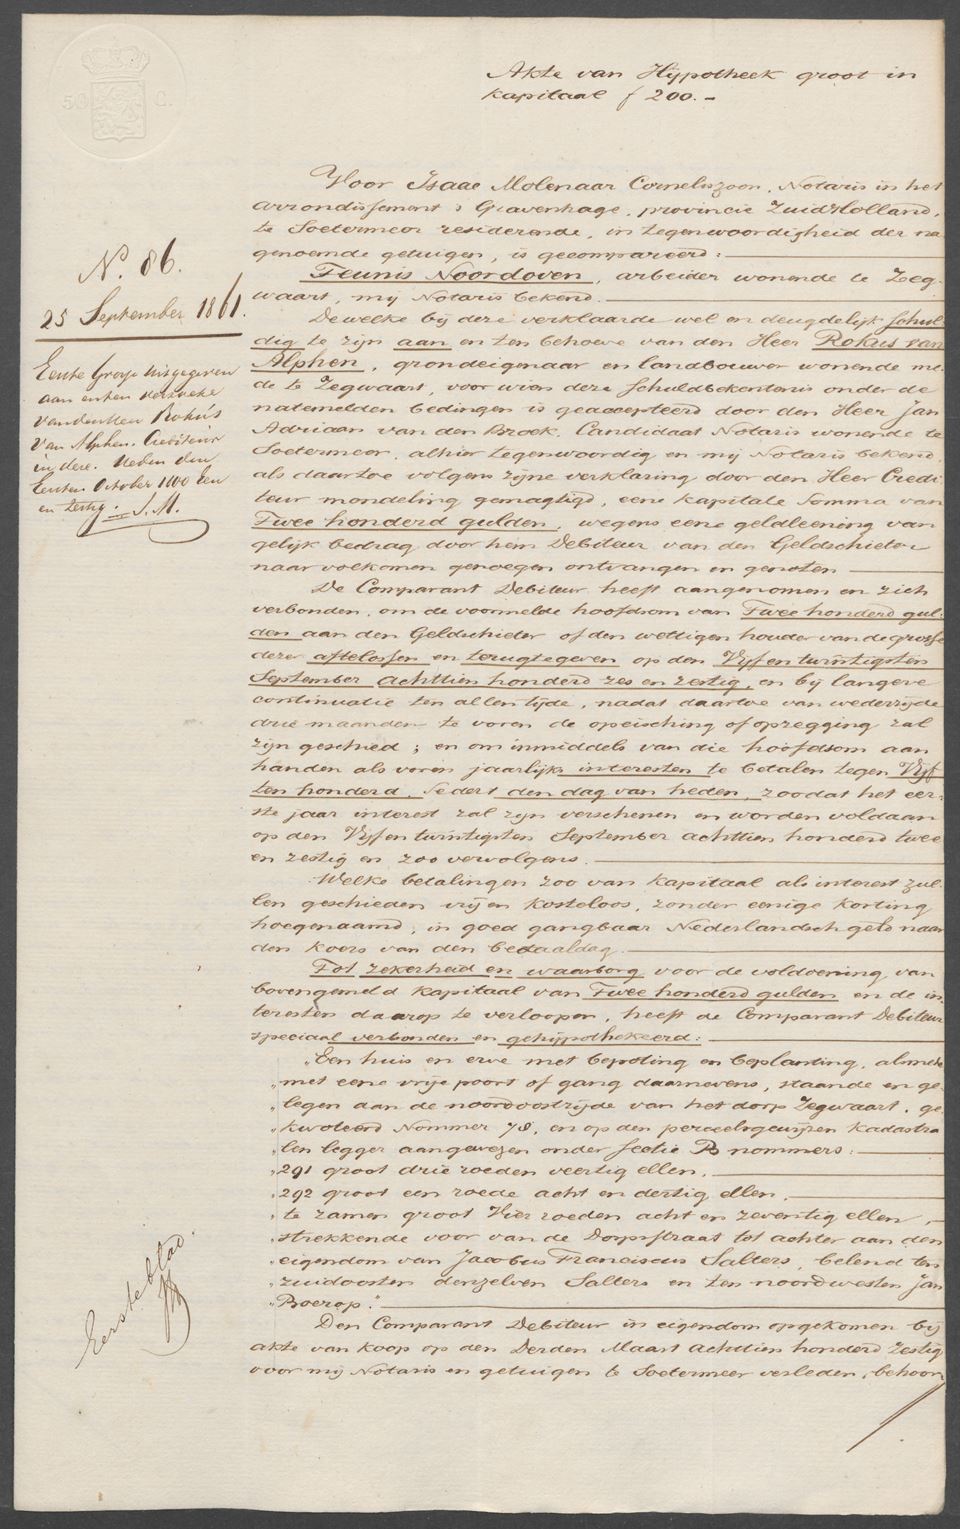 50 C.
Akte van Hypotheek groot in
kapitaal f 200.-
Voor Isaac Molenaar Corneliszoon, Notaris in het
arrondissement 's Gravenhage, provincie Zuid Holland,
te Soetermeer residerende, in tegenwoordigheid der na
genoemde getuigen, is gecompareerd:
Teunis Noordoven, arbeider wonende te Zeg-
waart, mij Notaris bekend.
Dewelke bij deze verklaarde wel en deugdelijk schul-
dig te zijn aan en ten behoeve van den Heer Rokus van
Alphen, grondeigenaar en landbouwer wonende me-
de te Zegwaart, voor wien deze schuldbekentenis onder de
natemelden bedingen is geaccepteerd door den Heer Jan
Adriaan van den Broek, Candidaat Notaris wonende te
Soetermeer, alhier tegenwoordig en mij Notaris bekend,
als daartoe volgens zijne verklaring door den Heer Credi-
teur mondeling gemagtigd, eene kapitale somma van
Twee honderd gulden, wegens eene geldleening van
gelijk bedrag door hem Debiteur van den Geldschieter
naar volkomen genoegen ontvangen en genoten
De Comparant Debiteur heeft aangenomen en zich
verbonden, om de voormelde hoofdsom van Twee honderd gul-
den aan den Geldschieter of den wettigen houder van de grosse
dezer aftelossen en terugtegeven op den Vijf en twintigsten
September achttien honderd zes en zestig, en bij langere
continuatie ten allen tijde, nadat daartoe van wederzijde
drie maanden te voren de opeisching of opzegging zal
zijn geschied; en om inmiddels van die hoofdsom aan
handen als voren jaarlijks interesten te betalen tegen Vijf
ten honderd, sedert den dag van heden, zoodat het eer-
ste jaar interest zal zijn verschenen en worden voldaan
op den Vijf en twintigsten September achttien honderd twee
en zestig en zoo vervolgens.
Welke betalingen zoo van kapitaal als interest zul-
len geschieden vrij en kosteloos, zonder eenige korting
hoegenaamd, in goed gangbaar Nederlandsch geld naar
den koers van den betaaldag.
Tot zekerheid en waarborg voor de voldoening van
bovengemeld kapitaal van Twee honderd gulden en de in-
teresten daarop te verloopen, heeft de Comparant Debiteur
speciaal verbonden en gehypothekeerd:
"Een huis en erve met bepoting en beplanting, alsmede
"met eene vrije poort of gang daarnevens, staande en ge-
"legen aan de noordoostzijde van het dorp Zegwaart, ge-
"kwoteerd Nommer 78, en op den perceelsgewijzen kadastra
"len legger aangewezen onder sectie B nommers:
"291 groot drie roeden veertig ellen,
"292 groot een roede acht en dertig ellen,
"te zamen groot Vier roeden acht en zeventig ellen,
"strekkende voor van de Dorpsstraat tot achter aan den
"eigendom van Jacobus Franciscus Salters, belend ten
"zuidoosten denzelven Salters en ten noordwesten Jan
"Boerop."
Den Comparant Debiteur in eigendom opgekomen bij
akte van koop op den Derden Maart achttien honderd zestig
voor mij Notaris en getuigen te Soetermeer verleden, behoor
N. 86.
25 September 1861.
Eerste Grosse uitgegeven
aan en ten verzoeke
van den Heer Rokus
van Alphen, Crediteur
in deze. Heden den
Eersten October 1800 Een
en zestig. I.M.
Eerste blad.